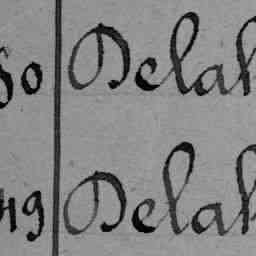 50 Delah
49 Delah